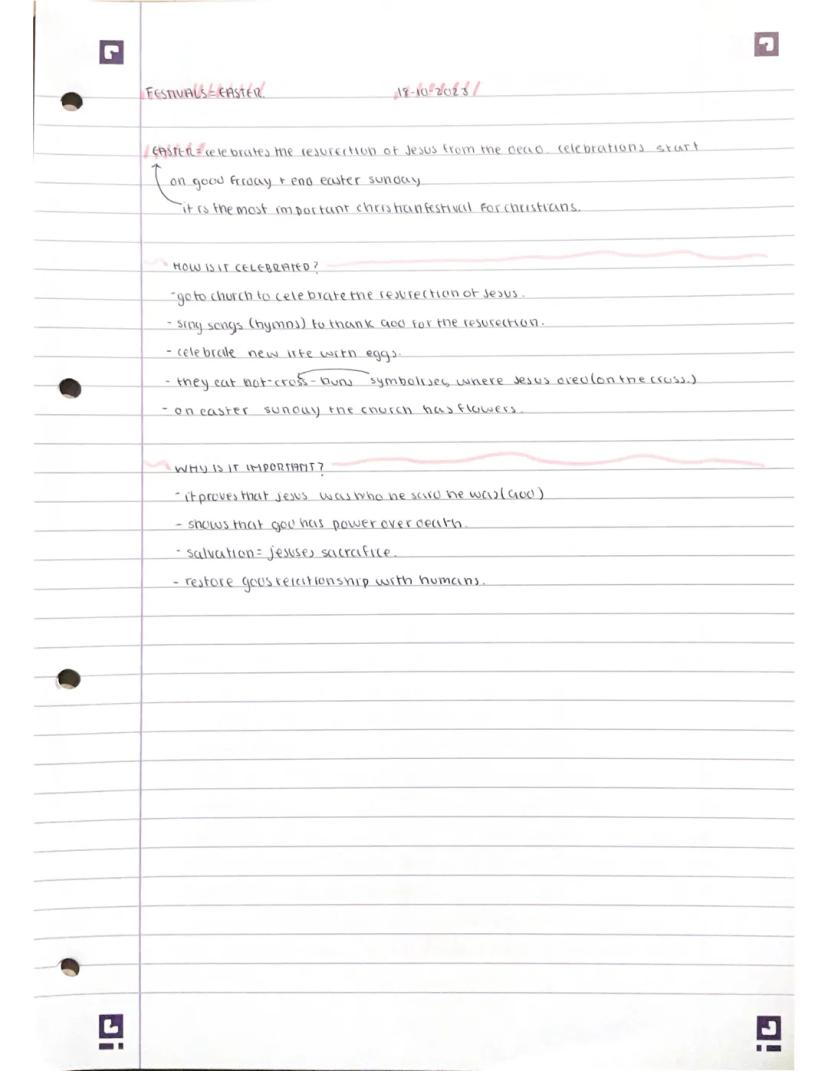 FESTIVALS = EASTER. 18-10-2023
EASTER = celebrates the resurection of Jesus from the dead. celebrations start
on good friday + end easter sunday
it is the most important christian festival for christians.
HOW IS IT CELEBRATED?
- go to church to celebrate the resurection of Jesus.
- sing songs (hymns) to thank God for the resurection.
- celebrate new life with eggs.
- they eat hot-cross-buns symbolises where Jesus died (on the cross.)
- on easter sunday the church has flowers.
WHY IS IT IMPORTANT?
- it proves that Jesus was who he said he was (God)
- shows that god has power over death.
- salvation = jesuses sacrafice.
- restore gods relationship with humans.